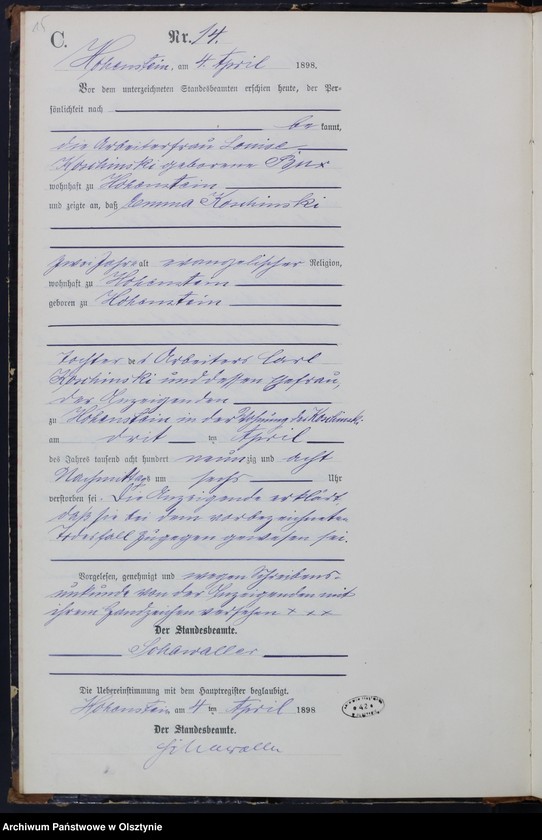 15
C. Nr. 14.
Hohenstein, am 4. April 1898.
Vor dem unterzeichneten Standesbeamten erschien heute, der Per-
sönlichkeit nach
be kannt,
die Arbeiterfrau Louise
Koschinski geborene
wohnhaft zu Hohenstein
und zeigte an, daß Emma Koschinski
zwei Jahre alt evangelischer Religion,
wohnhaft zu Hohenstein
geboren zu Hohenstein
Tochter des Arbeiters Carl
Koschinski und dessen Ehefrau,
der Anzeigenden
zu Hohenstein in der Wohnung des Koschinski
am drit im April
des Jahres tausend acht hundert neunzig und acht
Nachmittags um sechs Uhr
verstorben sei. Die Anzeigende erklärt
daß sie bei dem vorbezeichneten
Todesfall zugegen gewesen sei.
Vorgelesen, genehmigt und wegen Schreibens-
unkunde von der Anzeigenden mit
ihrem Handzeichen versehen + + +
Der Standesbeamte.
Schawaller
Die Uebereinstimmung mit dem Hauptregister beglaubigt.
Hohenstein am 4 ten April 1898
Der Standesbeamte.
Schawaller
* 42 *
Archiwum Państwowe w Olsztynie